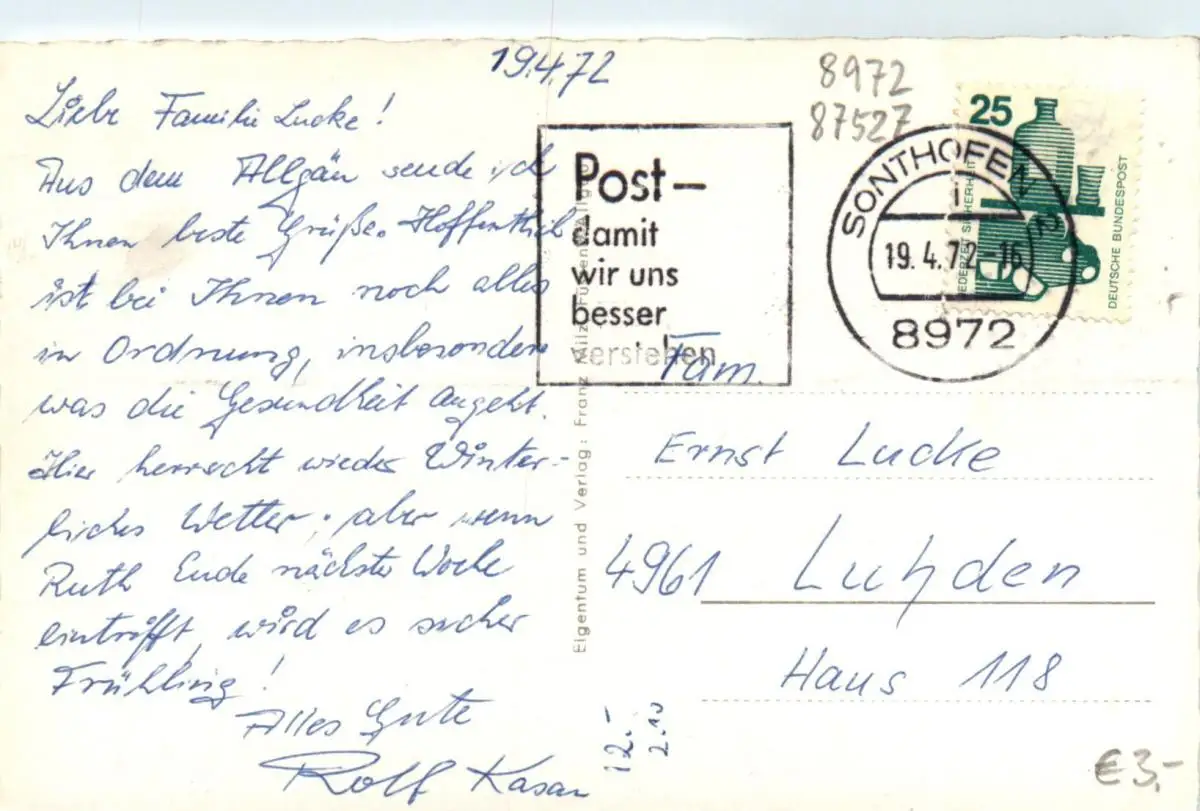 19.4.72
Liebe Familie Lucke!
Aus dem Allgäu sende ich
Ihnen beste Grüße. Hoffentlich
ist bei Ihnen noch alles
in Ordnung, insbesondere
was die Gesundheit angeht.
Hier herrscht wieder Winter-
liches Wetter, aber wenn
Ruth Ende nächster Woche
eintrifft, wird es sicher
Frühling!
Alles Gute
Rolf
8972
87527
Post –
damit
wir uns
besser
verstehen
SONTHOFEN
19.4.72-16
8972
25
JEDERZEIT SICHERHEIT
DEUTSCHE BUNDESPOST
Eigentum und Verlag: Franz Milz, Füssen
Fam.
Ernst Lucke
4961 Luhden
Haus 118
12.-
2.10
€3,-